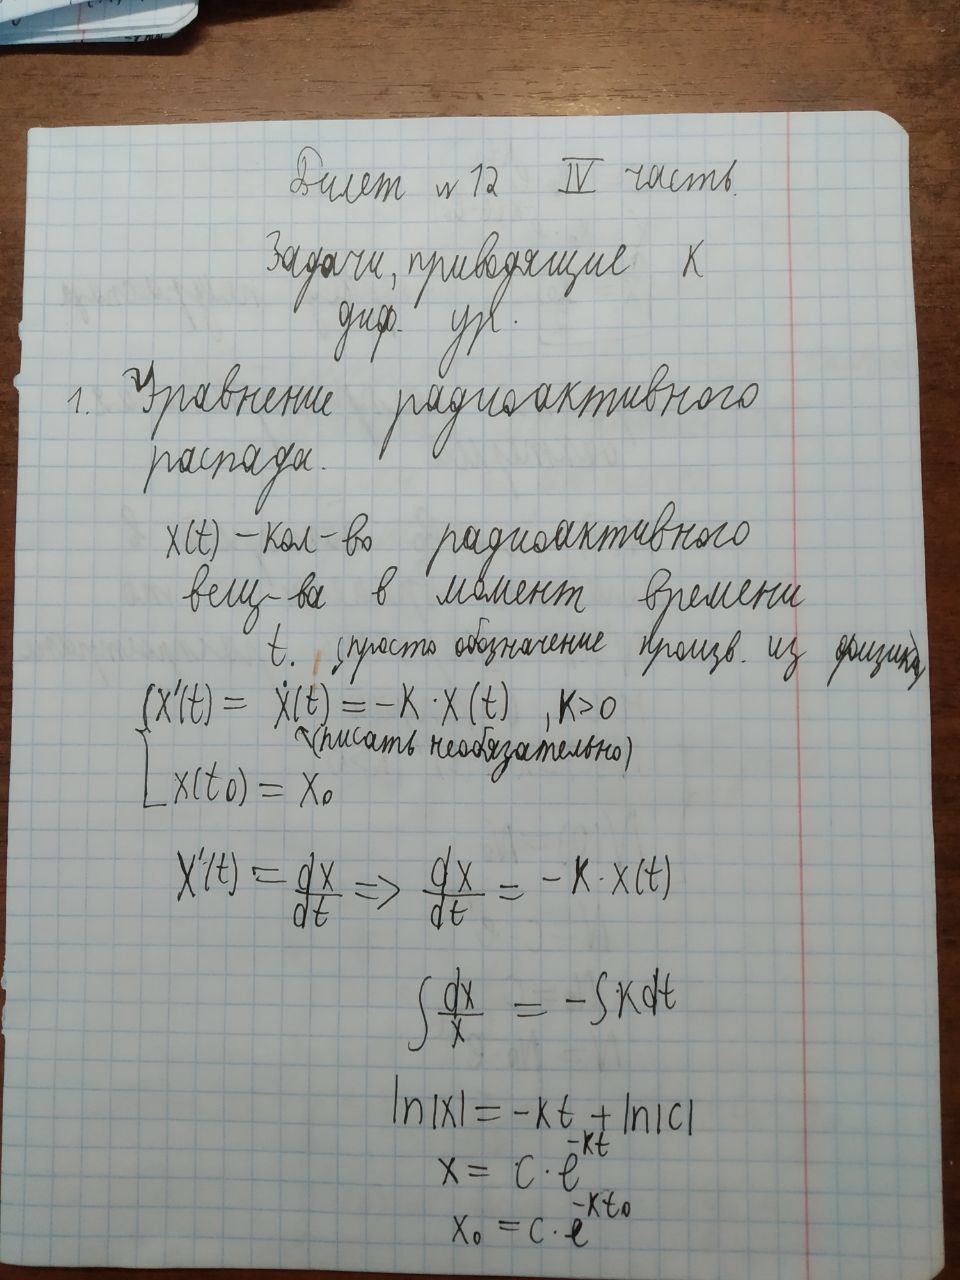 Билет № 12 IV часть.
Задачи, приводящие к
диф. ур.
1. Уравнение радиоактивного
распада.
x(t) – кол-во радиоактивного
вещ-ва в момент времени
t. (просто обозначение произв. из физики)
{ x'(t) = ẋ(t) = -k · x(t) , k>0
(писать необязательно)
x(t₀) = x₀
x'(t) = dx/dt => dx/dt = -k · x(t)
∫ dx/x = -∫ k dt
ln|x| = -kt + ln|c|
x = c · e^{-kt}
x₀ = c · e^{-kt₀}